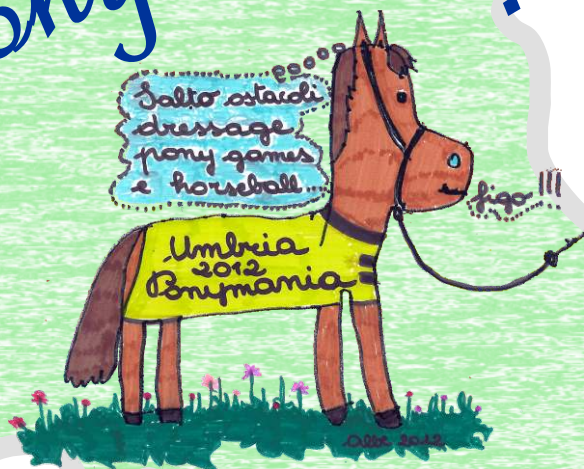 ony
Salto ostacoli
dressage
pony games
e horseball
figo !!!
Umbria
2012
Ponymania
Albe 2012